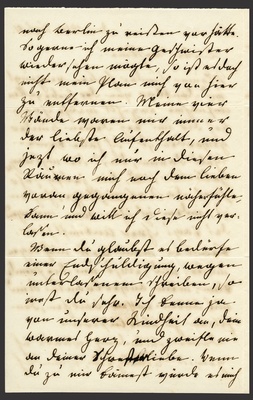 nach Berlin zu reisen vor hätte.
So gerne ich meine Geschwister
wieder sehen mögte, so ist es doch
nicht mein Plan mich von hier
zu entfernen. Meine vier
Wände waren mir immer
der liebste Aufenthalt, und
jezt wo ich nur in diesen
Räumen mich nach dem lieben
voran gegangenen näher fühle,
kann und will ich diese nicht ver
lassen.
Wenn du glaubst es bedürfe
einer Endschuldigung, wegen
unterlassenem Schreiben, so
irrst du sehr. Ich kenne ja
von unserer Kindheit an, dein
warmes Herz, und zweifle nie
an deiner Schwesterliebe. Wenn
du zu mir kämest würde es mich